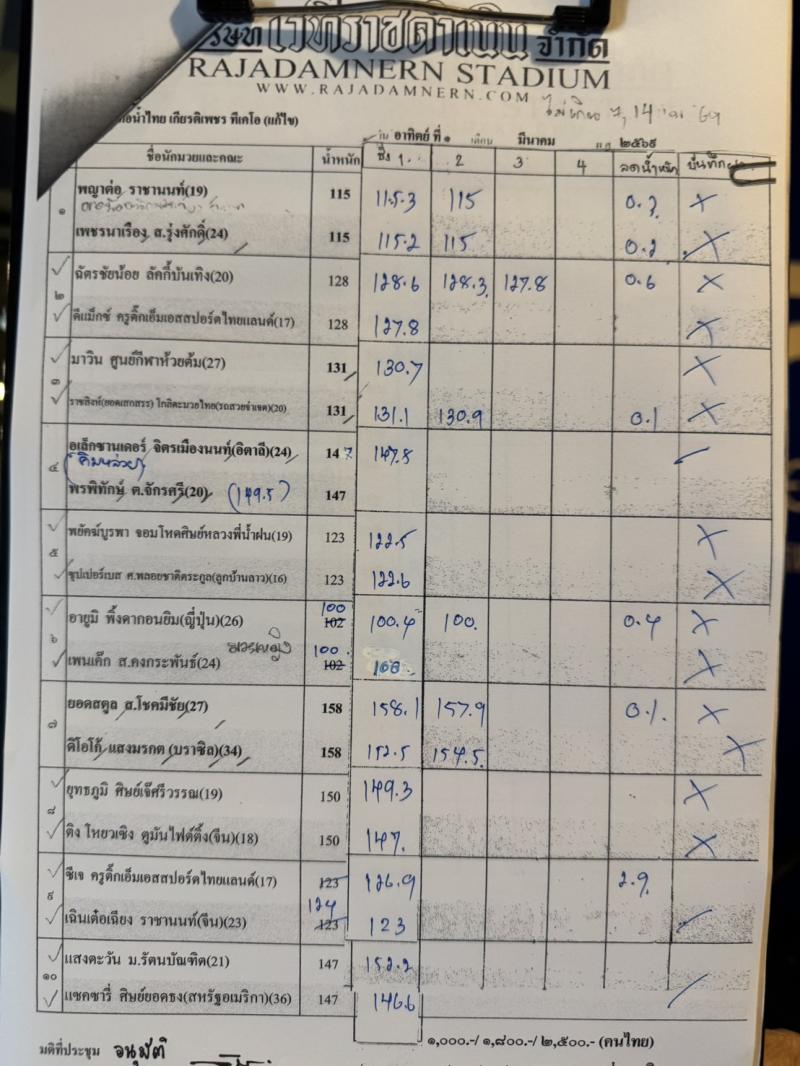 บริษัท เวทีราชดำเนิน จำกัด
RAJADAMNERN STADIUM
WWW.RAJADAMNERN.COM
น้ำไทย เกียรติเพชร ทีเคโอ (แก้ไข)
อาทิตย์ ที่ ๑ เดือน มีนาคม พ.ศ. ๒๕๖๙
ชื่อนักมวยและคณะ น้ำหนัก ชั่ง 1. 2 3 4 ลดน้ำหนัก
๑ พญาต่อ ราชานนท์(19) 115 115.3 115 0.3 X
เพชรนาเรือง ส.รุ่งศักดิ์(24) 115 115.2 115 0.2 X
๒ ฉัตรชัยน้อย ลัคกี้บันเทิง(20) 128 128.6 128.3 127.8 0.6 X
ดีแม็กซ์ ครูดิ๊กเอ็มเอสสปอร์ตไทยแลนด์(17) 128 127.8 X
๓ มาวิน ศูนย์กีฬาห้วยต้ม(27) 131 130.7 X
ราชสิงห์(ยอดเสกสรร) โกสิตะมวยไทย(รถสวยจ่าเขต)(20) 131 131.1 130.9 0.1 X
๔ อเล็กซานเดอร์ จิตรเมืองนนท์(อิตาลี)(24) 147 147.8 ✓
พรพิทักษ์ ต.จักรศรี(20) (149.5) 147
๕ พยัคฆ์บูรพา จอมโหดศิษย์หลวงพี่น้ำฝน(19) 123 122.5 X
ซุปเปอร์เบส ศ.พลอยชาติตระกูล(ลูกบ้านลาว)(16) 123 122.6 X
๖ อายูมิ พิ้งดากอนยิม(ญี่ปุ่น)(26) 100 102 100.4 100. 0.4 X
มวยหญิง
เพนเค็ก ส.คงกระพันธ์(24) 100. 102 100 X
๗ ยอดสตูล ส.โชคมีชัย(27) 158 158.1 157.9 0.1. X
ดิโอโก้ แสงมรกต (บราซิล)(34) 158 152.5 154.5. X
๘ ยุทธภูมิ ศิษย์เจ๊ศรีวรรณ(19) 150 149.3 X
ติง โหยวเซิง ตูมันไฟต์ติ้ง(จีน)(18) 150 147. X
๙ ซีเจ ครูดิ๊กเอ็มเอสสปอร์ตไทยแลนด์(17) 123 126.9 2.9.
เฉินเต๋อเฉียง ราชานนท์(จีน)(23) 124 123 123 ✓
๑๐ แสงตะวัน ม.รัตนบัณฑิต(21) 147 152.2
แซคชารี่ ศิษย์ยอดธง(สหรัฐอเมริกา)(36) 147 146.6
๑,๐๐๐.-/ ๑,๘๐๐.-/ ๒,๕๐๐.- (คนไทย)
มติที่ประชุม อนุมัติ